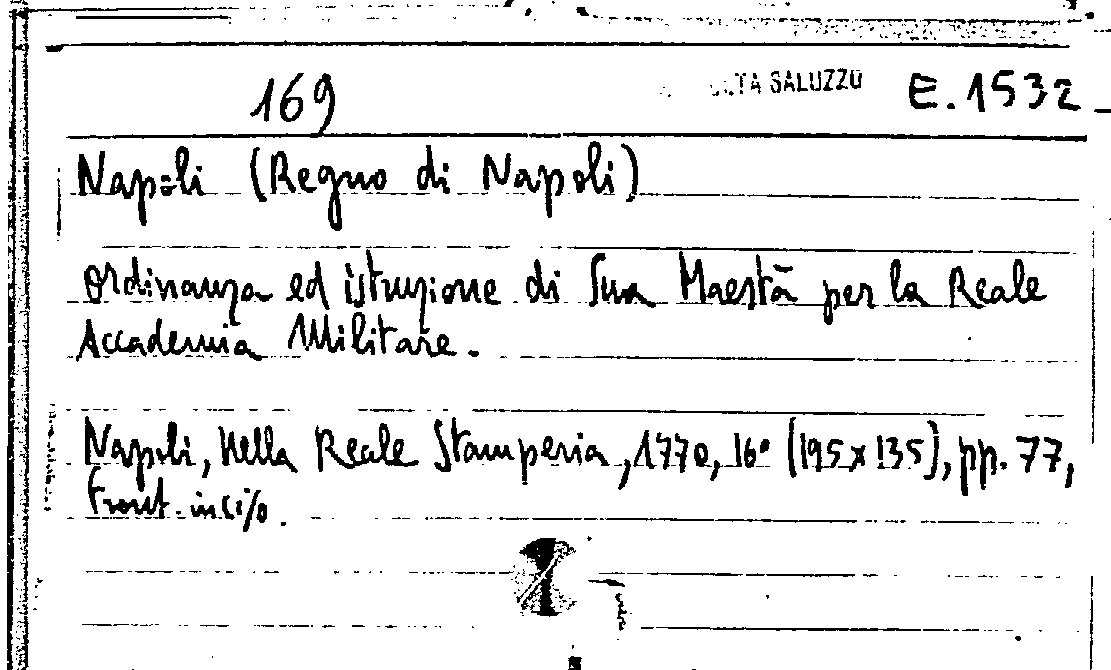 169 SALUZZO E.1532
Napoli (Regno di Napoli)
Ordinanza ed istruzione di Sua Maestà per la Reale
Accademia Militare.
Napoli, Nella Reale Stamperia, 1770, 16° [195x135], pp. 77,
front. inciso.